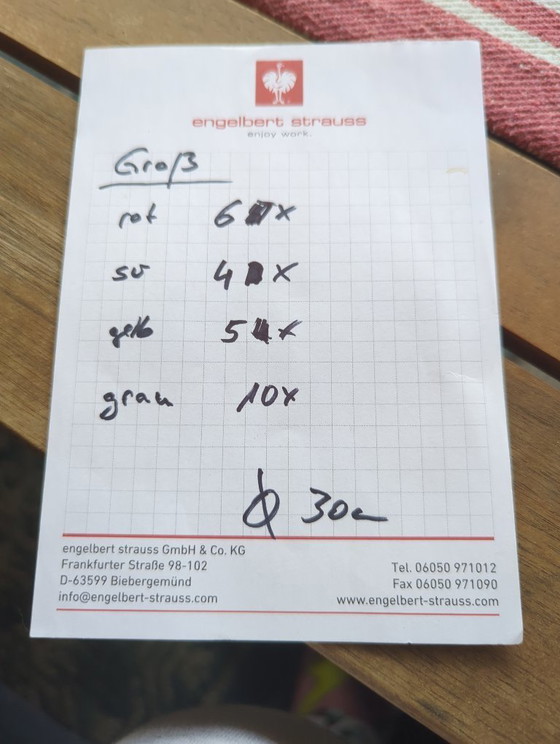 engelbert strauss
enjoy work.
Groß
rot 6 x
sw 4 x
gelb 5 x
grau 10x
Ø 30cm
engelbert strauss GmbH & Co. KG
Frankfurter Straße 98-102
D-63599 Biebergemünd
info@engelbert-strauss.com
Tel. 06050 971012
Fax 06050 971090
www.engelbert-strauss.com